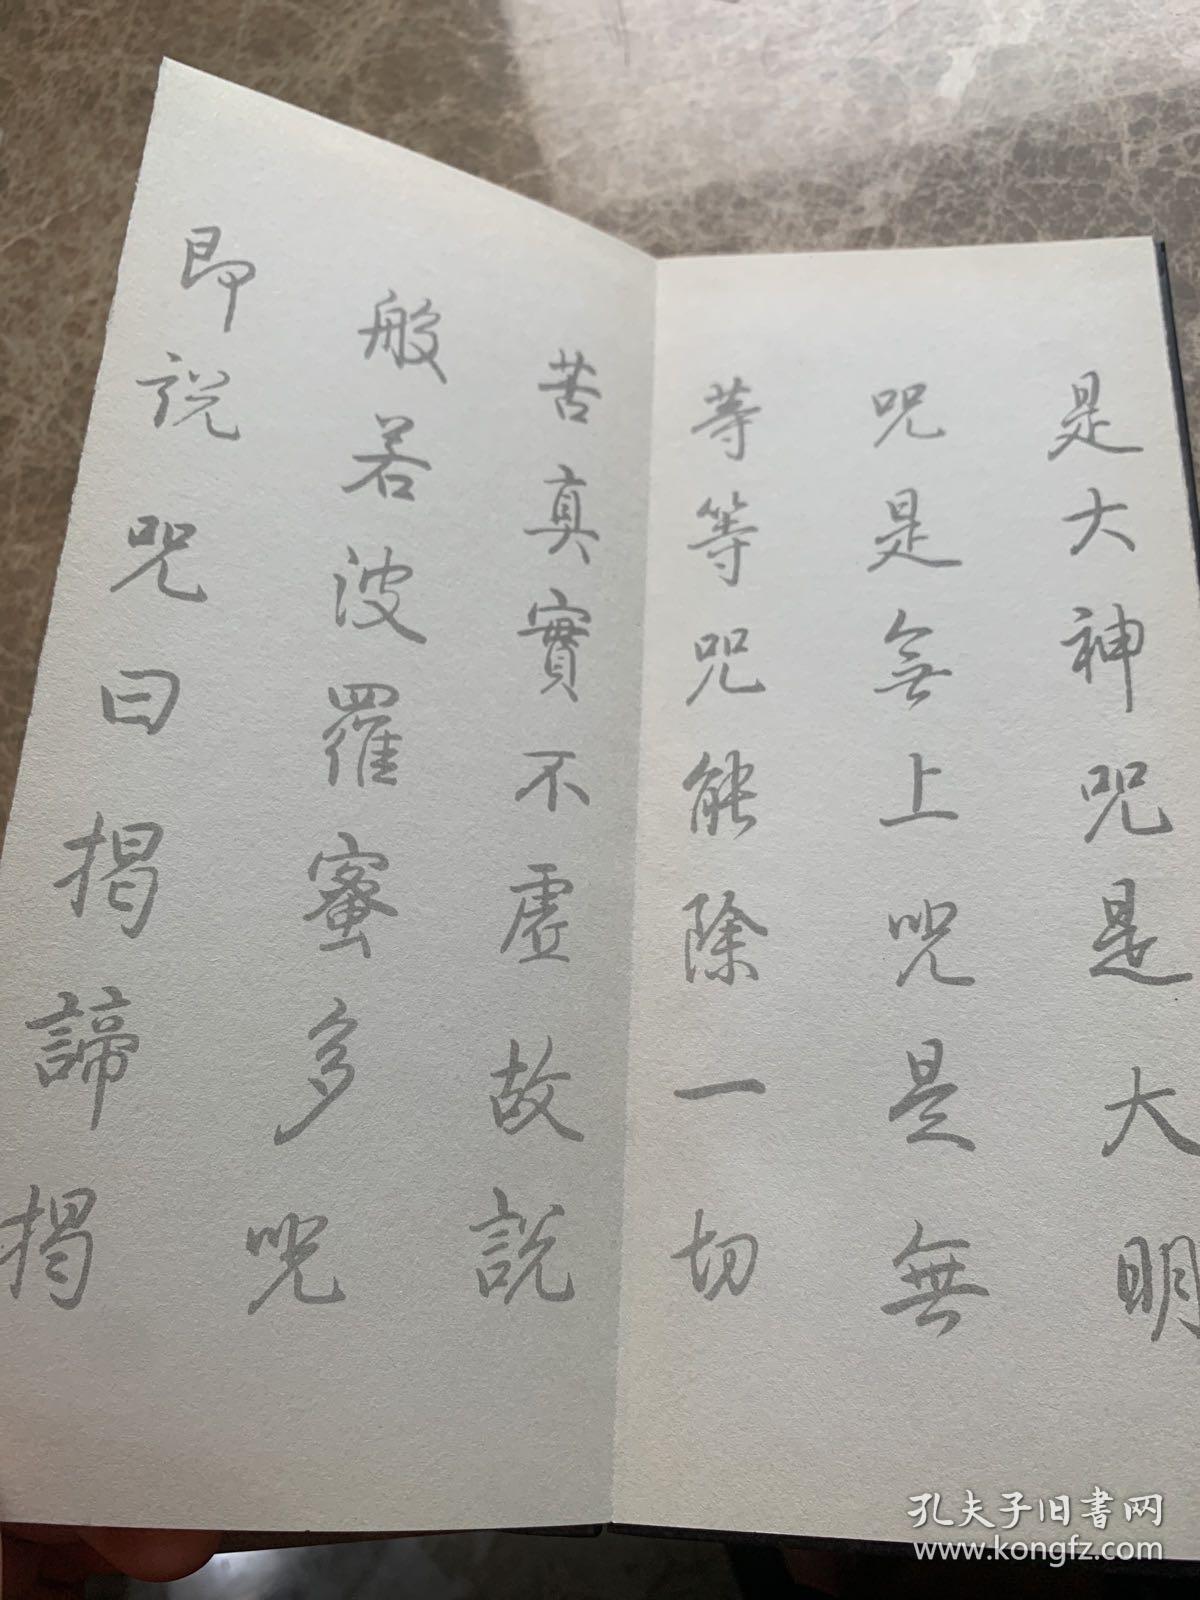 是大神咒是大明
咒是無上咒是無
等等咒能除一切
苦真實不虛故說
般若波羅蜜多咒
即說咒曰揭諦揭
孔夫子旧書网
www.kongfz.com